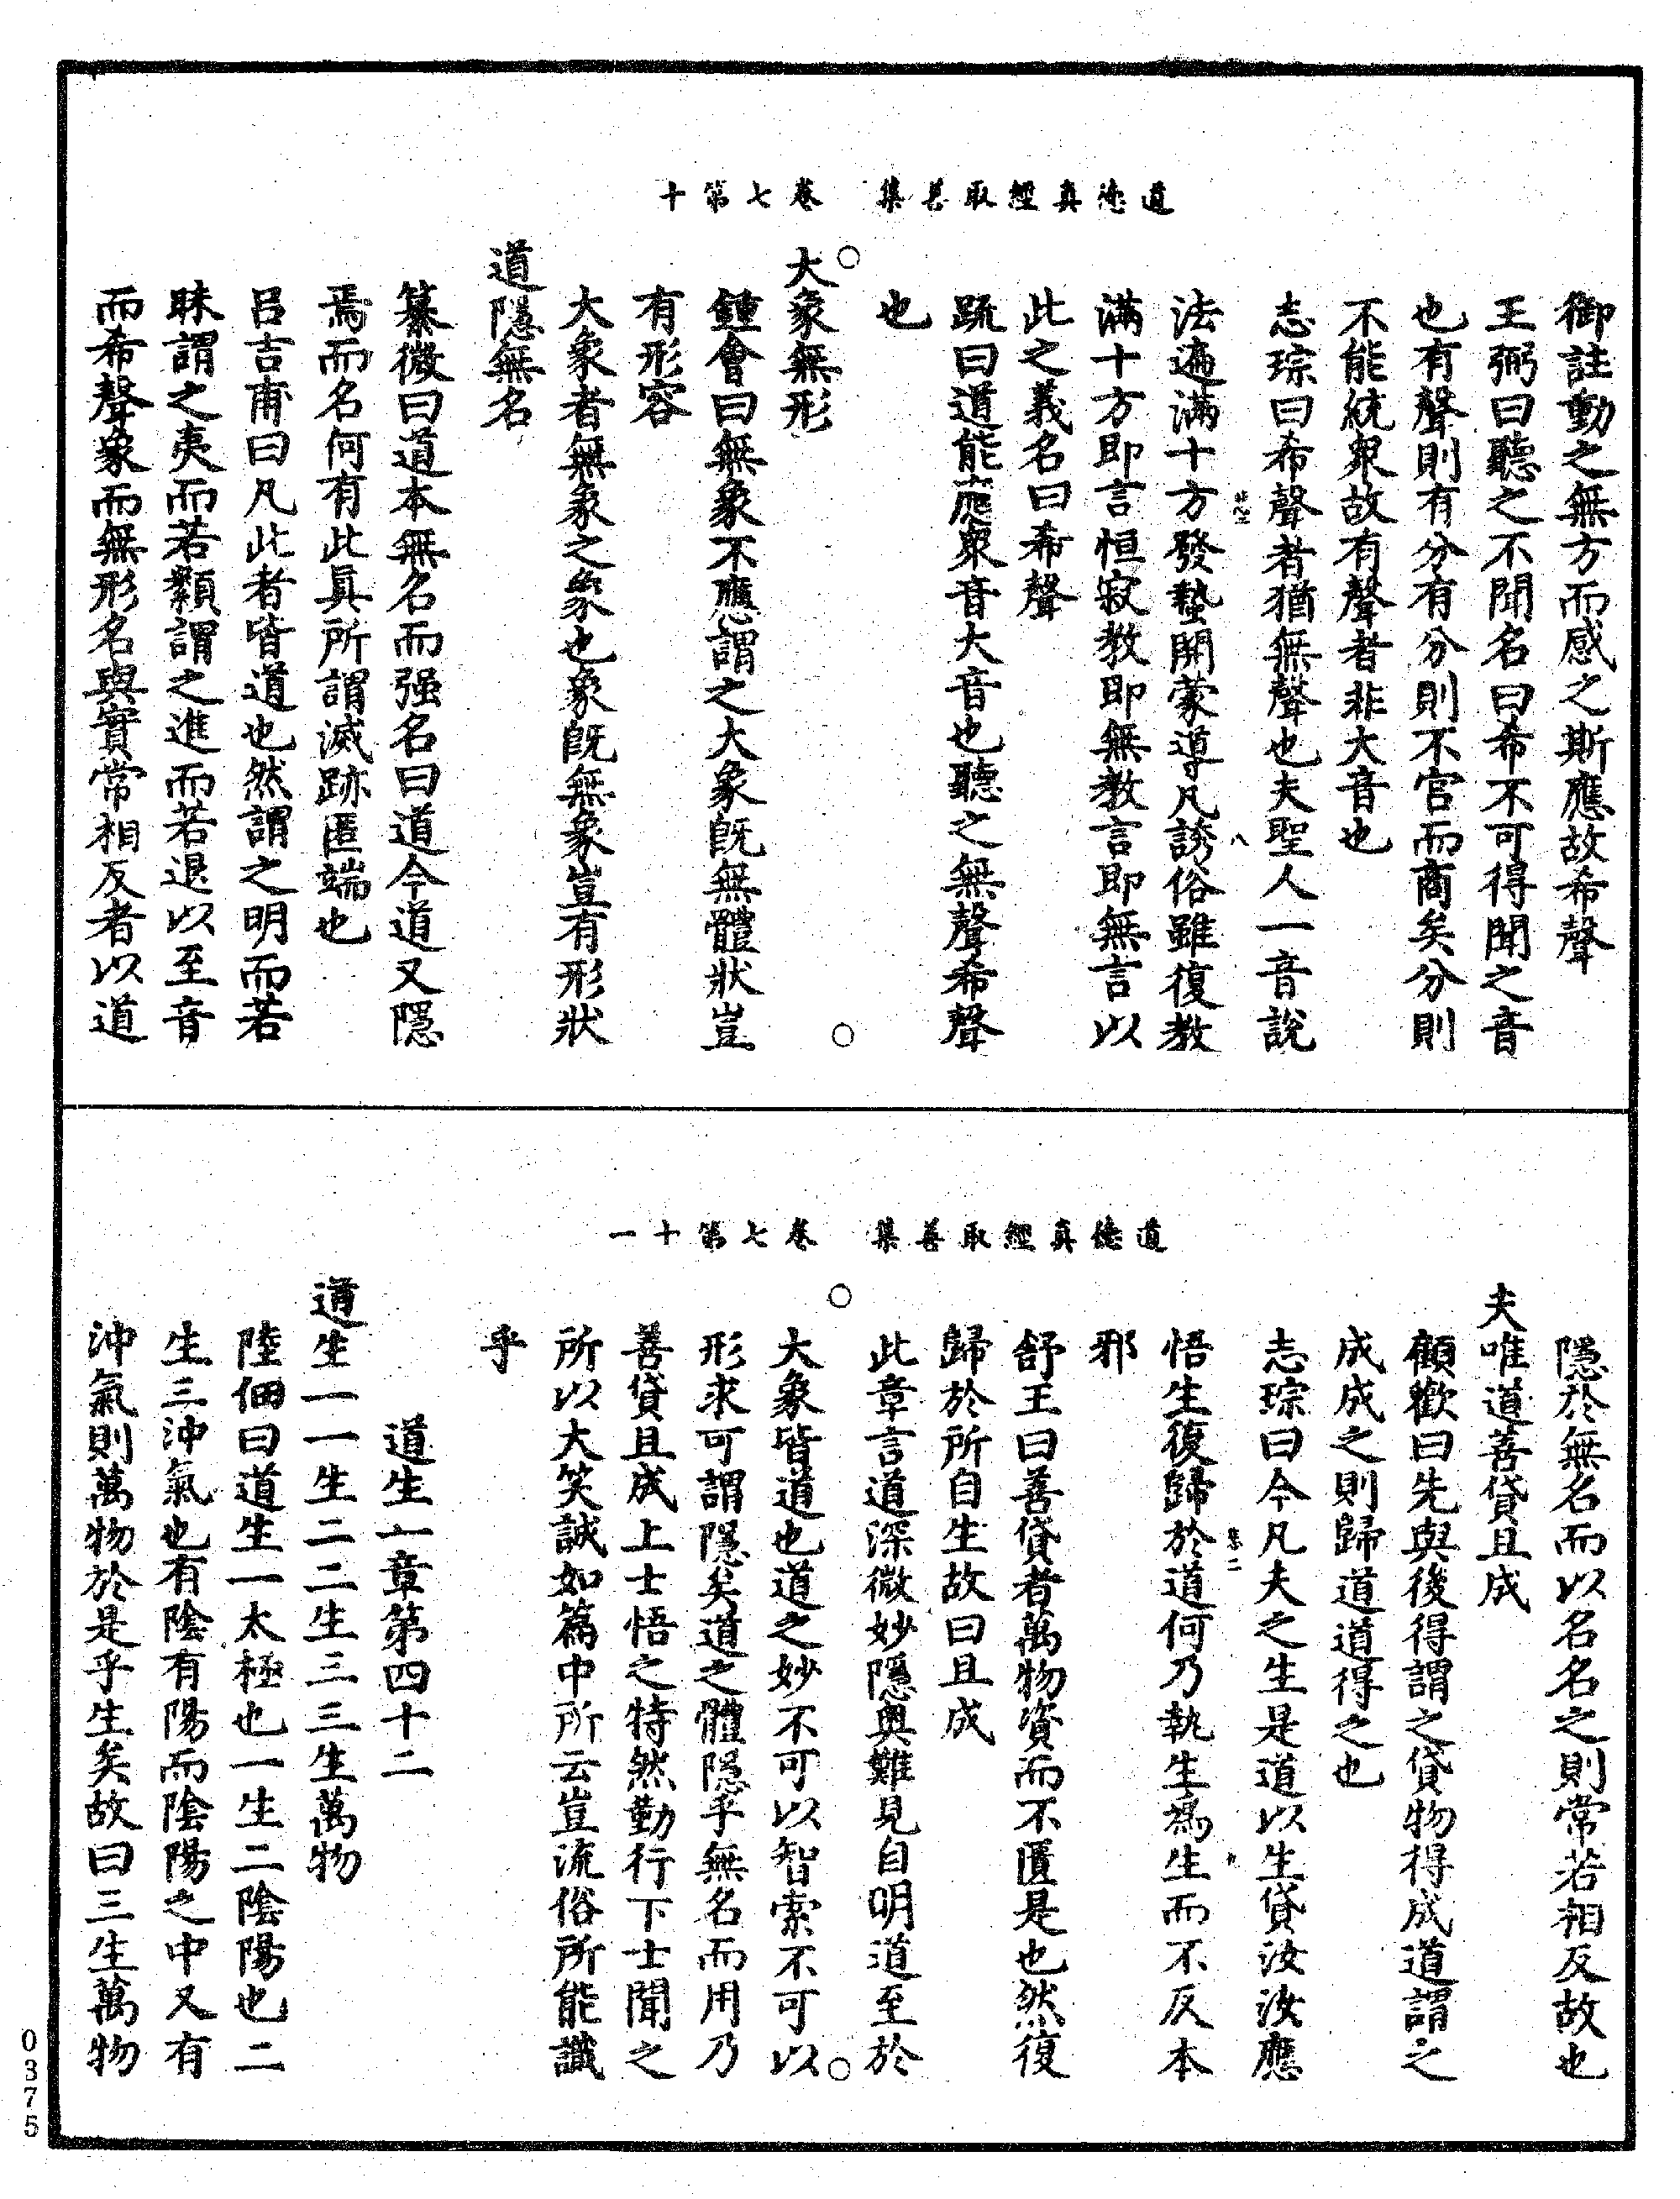 道德真經取善集　卷七第十
御註動之無方而感之斯應故希聲
王弼曰聽之不聞名曰希不可得聞之音
也有聲則有分有分則不宫而商矣分則
不能統衆故有聲者非大音也
志琮曰希聲者猶無聲也夫聖人一音說
八
法遍滿十方發蟄開蒙導凡誘俗雖復教
滿十方即言恒寂教即無教言即無言以
此之義名曰希聲
䟽曰道能應衆音大音也聽之無聲希聲
也
大象無形
鍾會曰無象不應謂之大象旣無體狀豈
有形容
大象者無象之象也象旣無象豈有形狀
道隱無名
纂微曰道本無名而强名曰道今道又隱
焉而名何有此眞所謂滅跡匿端也
吕吉甫曰凡此者皆道也然謂之明而若
昧謂之夷而若纇謂之進而若退以至音
而希聲象而無形名與實常相反者以道
道德真經取善集　卷七第十一
隱於無名而以名名之則常若相反故也
夫唯道善貸且成
顧歡曰先與後得謂之貸物得成道謂之
成成之則歸道道得之也
志琮曰今凡夫之生是道以生貸汝汝應
悟生復歸於道何乃執生爲生而不反本
邪
舒王曰善貸者萬物資而不匱是也然復
歸於所自生故曰且成
此章言道深微妙隱奥難見自明道至於
大象皆道也道之妙不可以智索不可以
形求可謂隱矣道之體隱乎無名而用乃
善貸且成上士悟之特然勤行下士聞之
所以大笑誠如篇中所云豈流俗所能識
乎
道生一章第四十二
道生一一生二二生三三生萬物
陸佃曰道生一太極也一生二陰陽也二
生三沖氣也有陰有陽而陰陽之中又有
沖氣則萬物於是乎生矣故曰三生萬物
0375